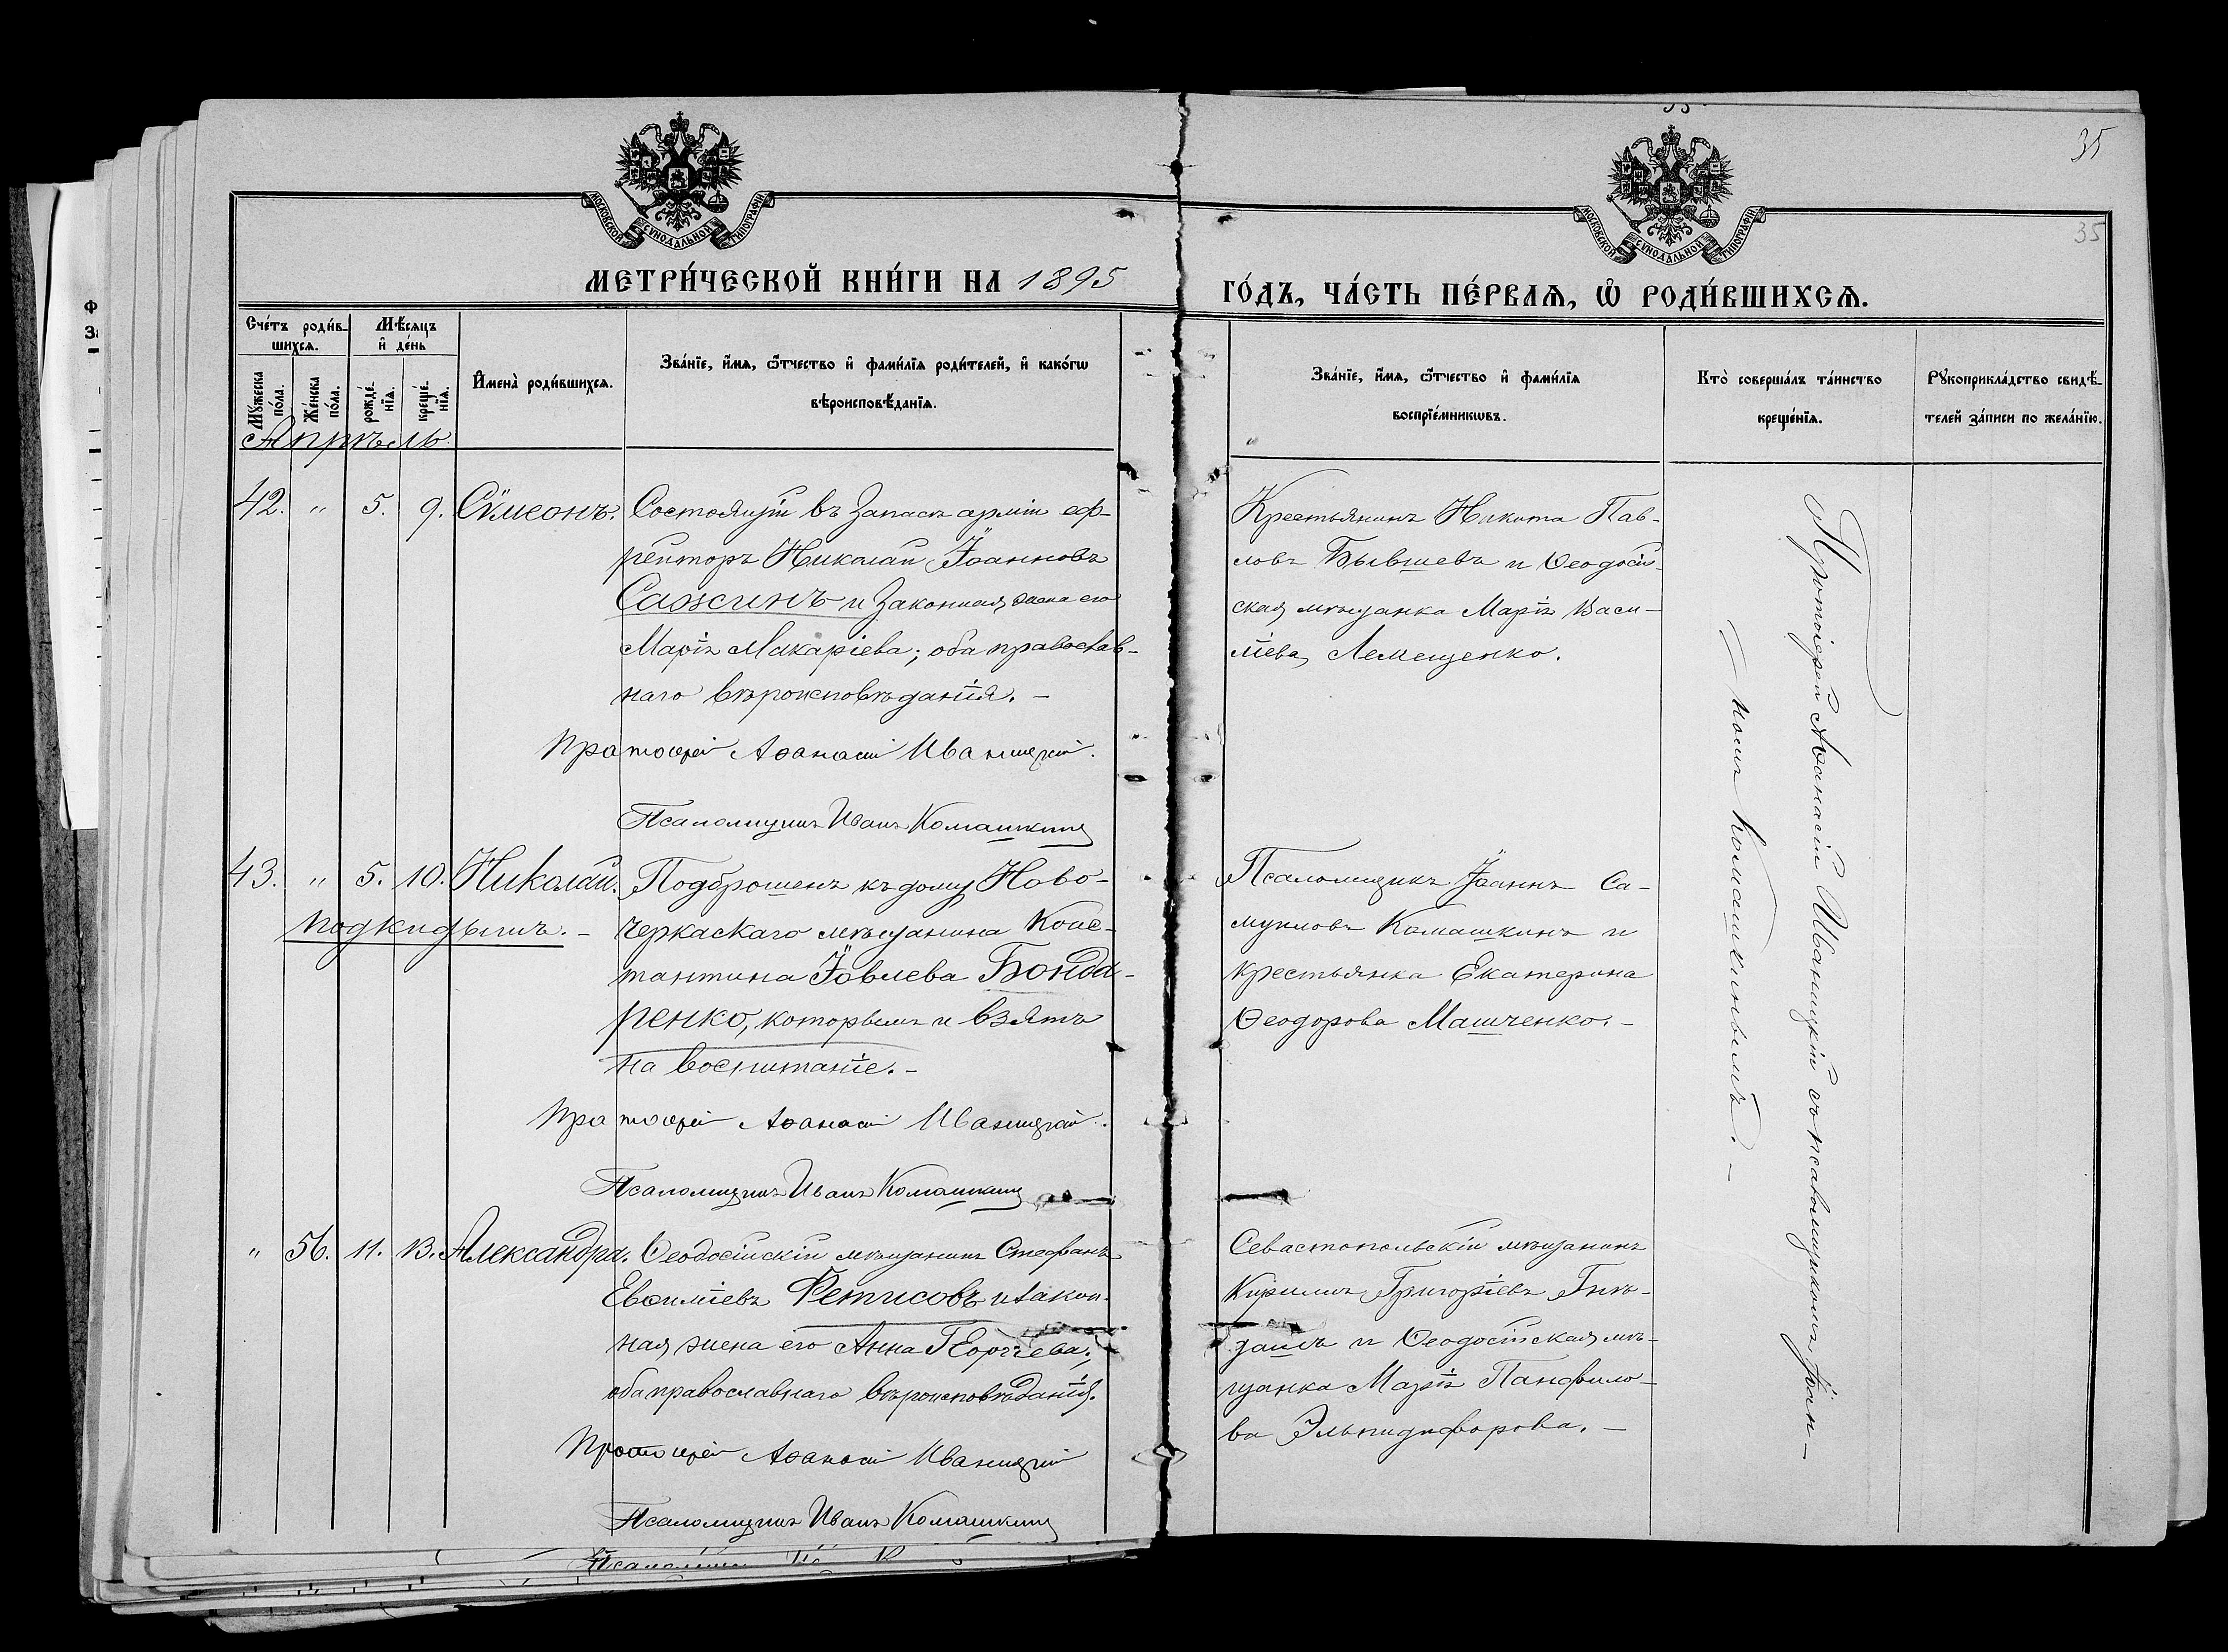 35
35
МОСКОВСКОЙ СѴНОДАЛЬНОЙ ТИПОГРАФІИ
МОСКОВСКОЙ СѴНОДАЛЬНОЙ ТИПОГРАФІИ
МЕТРИ́ЧЕСКОЙ КНИ́ГИ НА 1895
ГО́ДЪ, ЧА́СТЬ ПЕ́РВАѦ, Ѡ҆ РОДИ́ВШИХСѦ.
Сче́тъ роди́в-
шихсѧ.
Мѣ́сѧцъ
и҆ де́нь
Мꙋ́жеска
по́ла.
Же́нска
по́ла.
рожде́-
нїѧ.
креще́-
нїѧ.
И҆мена̀ роди́вшихсѧ.
Зва́нїе, и҆́мѧ, ѻ҆́тчество и҆ фами́лїѧ роди́телей, и҆ како́гѡ
вѣроисповѣ́данїѧ.
Зва́нїе, и҆́мѧ, ѻ҆́тчество и҆ фами́лїѧ
воспрїе́мникѡвъ.
Кто̀ соверша́лъ та́инство
креще́нїѧ.
Рꙋкоприкла́дство свидѣ́-
телей за́писи по жела́нїю.
Апрѣль.
42. " 5. 9. Сѵмеонъ. Состоящій въ запасѣ арміи еф-
рейторъ Николай Іоанновъ
Сажинъ и законная жена его
Марія Макаріева; оба православ-
наго вѣроисповѣданія. -
Протоіерей Аѳанасій Иваницкій.
Псаломщикъ Иванъ Комашкинъ
Крестьянинъ Никита Пав-
ловъ Бывшевъ и Ѳеодосій-
ская мѣщанка Марія Васи-
ліева Лемещенко.
43. " 5. 10. Николай. Подброшенъ къ дому Ново-
подкидышъ. - черкаскаго мѣщанина Конс-
тантина Іовлева Бонда-
ренко, которымъ и взятъ
на воспитаніе. -
Протоіерей Аѳанасій Иваницкій.
Псаломщикъ Иванъ Комашкинъ
Псаломщикъ Іоаннъ Са-
муиловъ Комашкинъ и
крестьянка Екатерина
Ѳеодорова Машченко. -
" 56. 11. 13. Александра. Ѳеодосійскій мѣщанинъ Стефанъ
Евѳиміевъ Фетисовъ и закон-
ная жена его Анна Георгіева;
оба православнаго вѣроисповѣданія.
Протоіерей Аѳанасій Иваницкій
Псаломщикъ Иванъ Комашкинъ
Севастопольскій мѣщанинъ
Кириллъ Григоріевъ
и Ѳеодосійская мѣ-
щанка Марія Панфило-
ва Эльпидифорова. -
Протоіерей Аѳанасій Иваницкій съ псаломщикомъ Іоан-
номъ Комашкинымъ. -